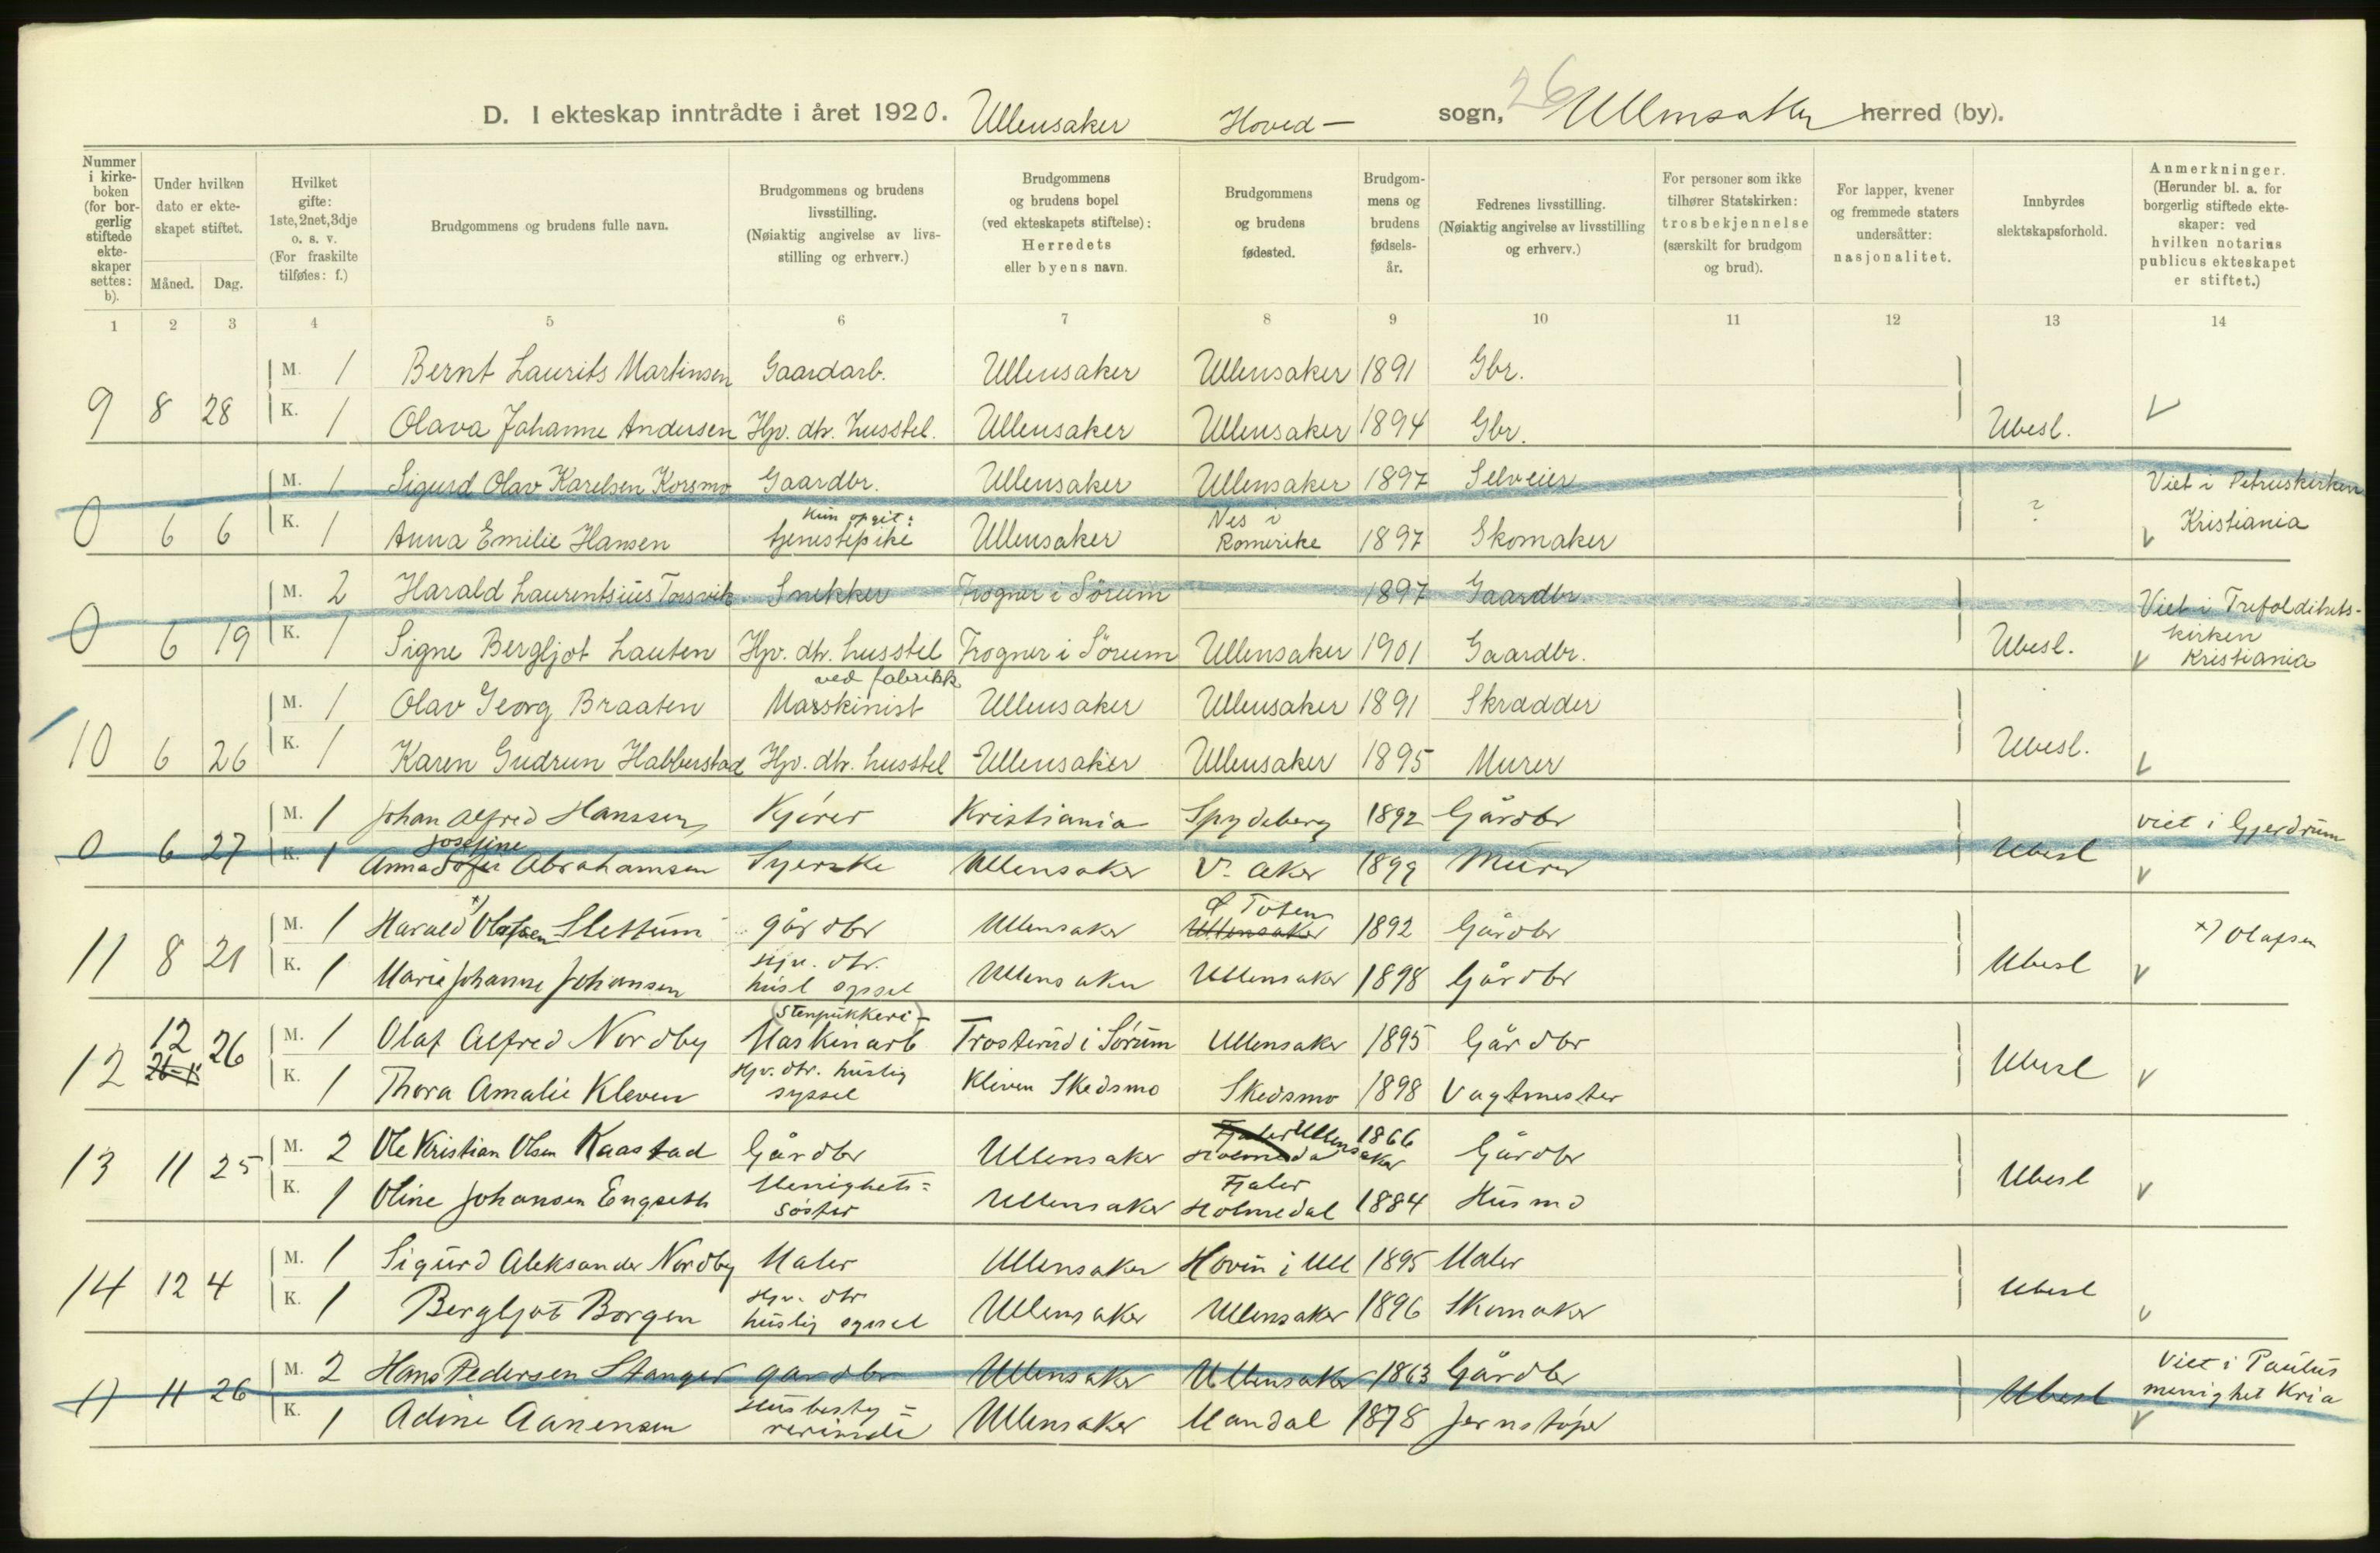 26
D. I ekteskap inntrådte i året 1920. Ullensaker Hoved- sogn, Ullensaker herred (by).
Nummer i kirkeboken (for borgerlig stiftede ekteskaper settes: b).
Under hvilken dato er ekteskapet stiftet.
Måned. Dag.
Hvilket gifte: 1ste, 2net, 3dje o. s. v. (For fraskilte tilføies: f.)
Brudgommens og brudens fulle navn.
Brudgommens og brudens livsstilling. (Nøiaktig angivelse av livsstilling og erhverv.)
Brudgommens og brudens bopel (ved ekteskapets stiftelse): Herredets eller byens navn.
Brudgommens og brudens fødested.
Brudgommens og brudens fødselsår.
Fedrenes livsstilling. (Nøiaktig angivelse av livsstilling og erhverv.)
For personer som ikke tilhører Statskirken: trosbekjennelse (særskilt for brudgom og brud).
For lapper, kvener og fremmede staters undersåtter: nasjonalitet.
Innbyrdes slektskapsforhold.
Anmerkninger. (Herunder bl. a. for borgerlig stiftede ekteskaper: ved hvilken notarius publicus ekteskapet er stiftet.)
1 2 3 4 5 6 7 8 9 10 11 12 13 14
M. 1 Bernt Laurits Martinsen Gaardarb. Ullensaker Ullensaker 1891 Gbr.
9 8 28 K. 1 Olava Johanne Andersen Hjv. dtr. husstel. Ullensaker Ullensaker 1894 Gbr. Ubesl. V
M. 1 Sigurd Olav Karelsen Korsmo Gaardbr. Ullensaker Ullensaker 1897 Selveier Viet i Petruskirken
0 6 6 K. 1 Anna Emilie Hansen Kun opgit: tjenestepike Ullensaker Nes i Romerike 1897 Skomaker ? V Kristiania
M. 2 Harald Laurentsius Torsvik Snekker Frogner i Sørum 1897 Gaardbr. Viet i Trefoldihets-
0 6 19 K. 1 Signe Bergljot Lauten Hjv. dtr. husstel Frogner i Sørum Ullensaker 1901 Gaardbr. Ubesl. V kirken Kristiania
M. 1 Olav Georg Braaten ved fabrikk Maskinist Ullensaker Ullensaker 1891 Skrædder
10 6 26 K. 1 Karen Gudrun Habberstad Hjv. dtr. husstel Ullensaker Ullensaker 1895 Murer Ubesl. V
M. 1 Johan Alfred Hanssen Kjörer Kristiania Spydeberg 1892 Gårdbr viet i Gjerdrum
0 6 27 K. 1 Anna Sofie Josefine Abrahamsen Syerske Ullensaker V. Aker 1899 Murer Ubesl V
M. 1 Harald x) Olafsen Slettum gårdbr Ullensaker Ullensaker Ø Toten 1892 Gårdbr x) Olafsen
11 8 21 K. 1 Marie Johanne Johansen Hjv. dtr. husl syssel Ullensaker Ullensaker 1898 Gårdbr Ubesl V
M. 1 Olaf Alfred Nordby (Stenpukkeri- Maskinarb Trosterud i Sörum Ullensaker 1895 Gårdbr
12 12 26 K. 1 Thora Amalie Kleven Hjv. dtr. huslig syssel Kleven Skedsmo Skedsmo 1898 Vagtmester Ubesl V
M. 2 Ole Kristian Olsen Kaastad Gårdbr Ullensaker Fjaler Holmedal Ullensaker 1866 Gårdbr
13 11 25 K. 1 Oline Johansen Engseth Menighets= söster Ullensaker Fjaler Holmedal 1884 Husmd Ubesl V
M. 1 Sigurd Aleksander Nordby Maler Ullensaker Hovin i Ull 1895 Maler
14 12 4 K. 1 Bergljot Borgen Hjv. dtr huslig syssel Ullensaker Ullensaker 1896 Skomaker Ubesl V
M. 2 Hans Pedersen Stanger gardbr Ullensaker Ullensaker 1863 Gårdbr Viet i Paulus
11 26 K. 1 Adine Aanensen Husbesty= rerinde Ullensaker Mandal 1878 Jernstöper Ubesl menighet Kria V